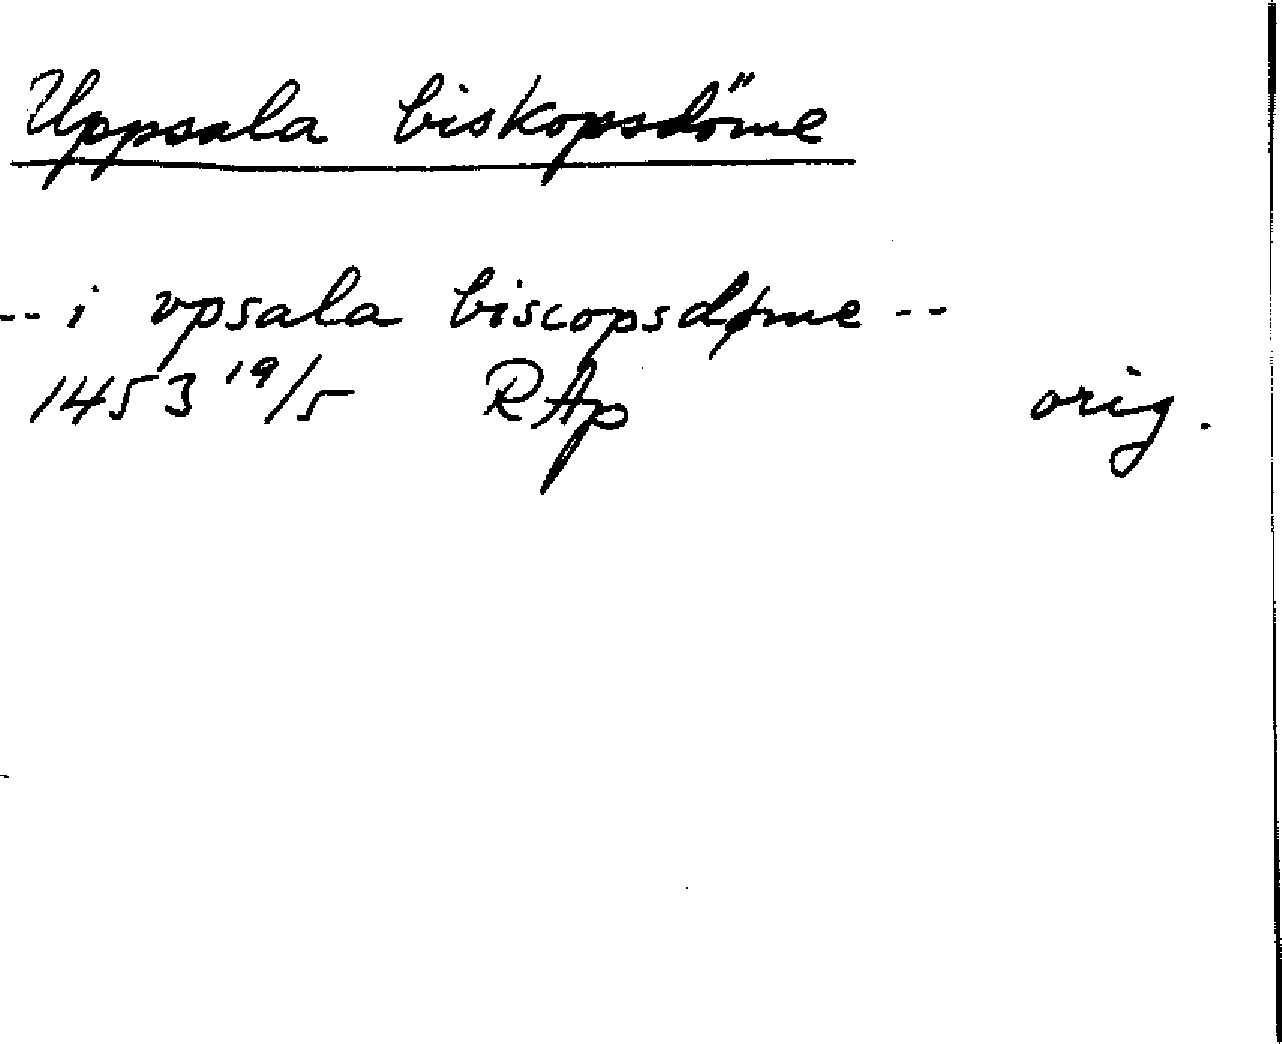 Uppsala biskopsdöme
-- i vpsala biscopsdøme --
1453 19/5 RAp orig.